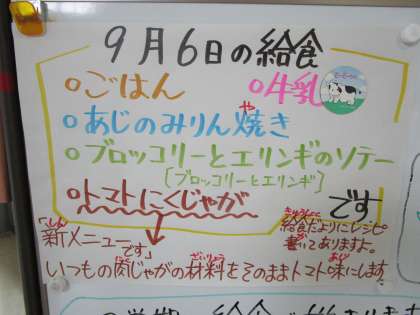 9月6日の給食
○ごはん ○牛乳
○あじのみりん焼き
○ブロッコリーとエリンギのソテー
〔ブロッコリーとエリンギ〕
○トマトにくじゃが です
「新メニューです」
給食だよりにレシピ
書いてありますよ。
いつもの肉じゃがの材料をそのままトマト味にします。